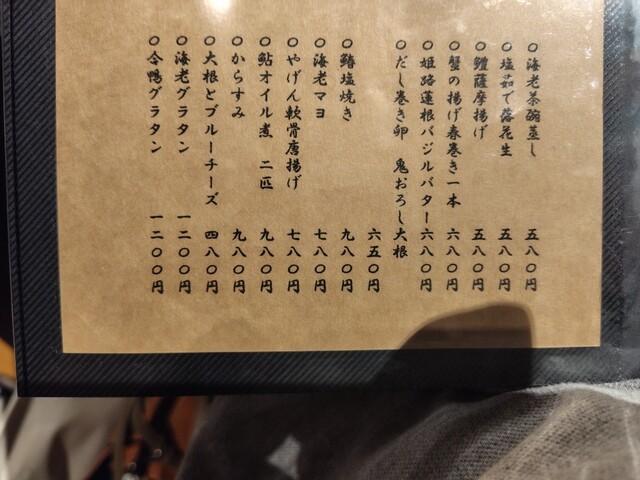 〇海老茶碗蒸し 五八〇円
〇塩茹で落花生 五八〇円
〇鱧薩摩揚げ 五八〇円
〇蟹の揚げ春巻き一本 六八〇円
〇姫路蓮根バジルバター 六八〇円
〇だし巻き卵 鬼おろし大根
六五〇円
〇鰆塩焼き 九八〇円
〇海老マヨ 七八〇円
〇やげん軟骨唐揚げ 七八〇円
〇鮎オイル煮 二匹 九八〇円
〇からすみ 九八〇円
〇大根とブルーチーズ 四八〇円
〇海老グラタン 一二〇〇円
〇合鴨グラタン 一二〇〇円